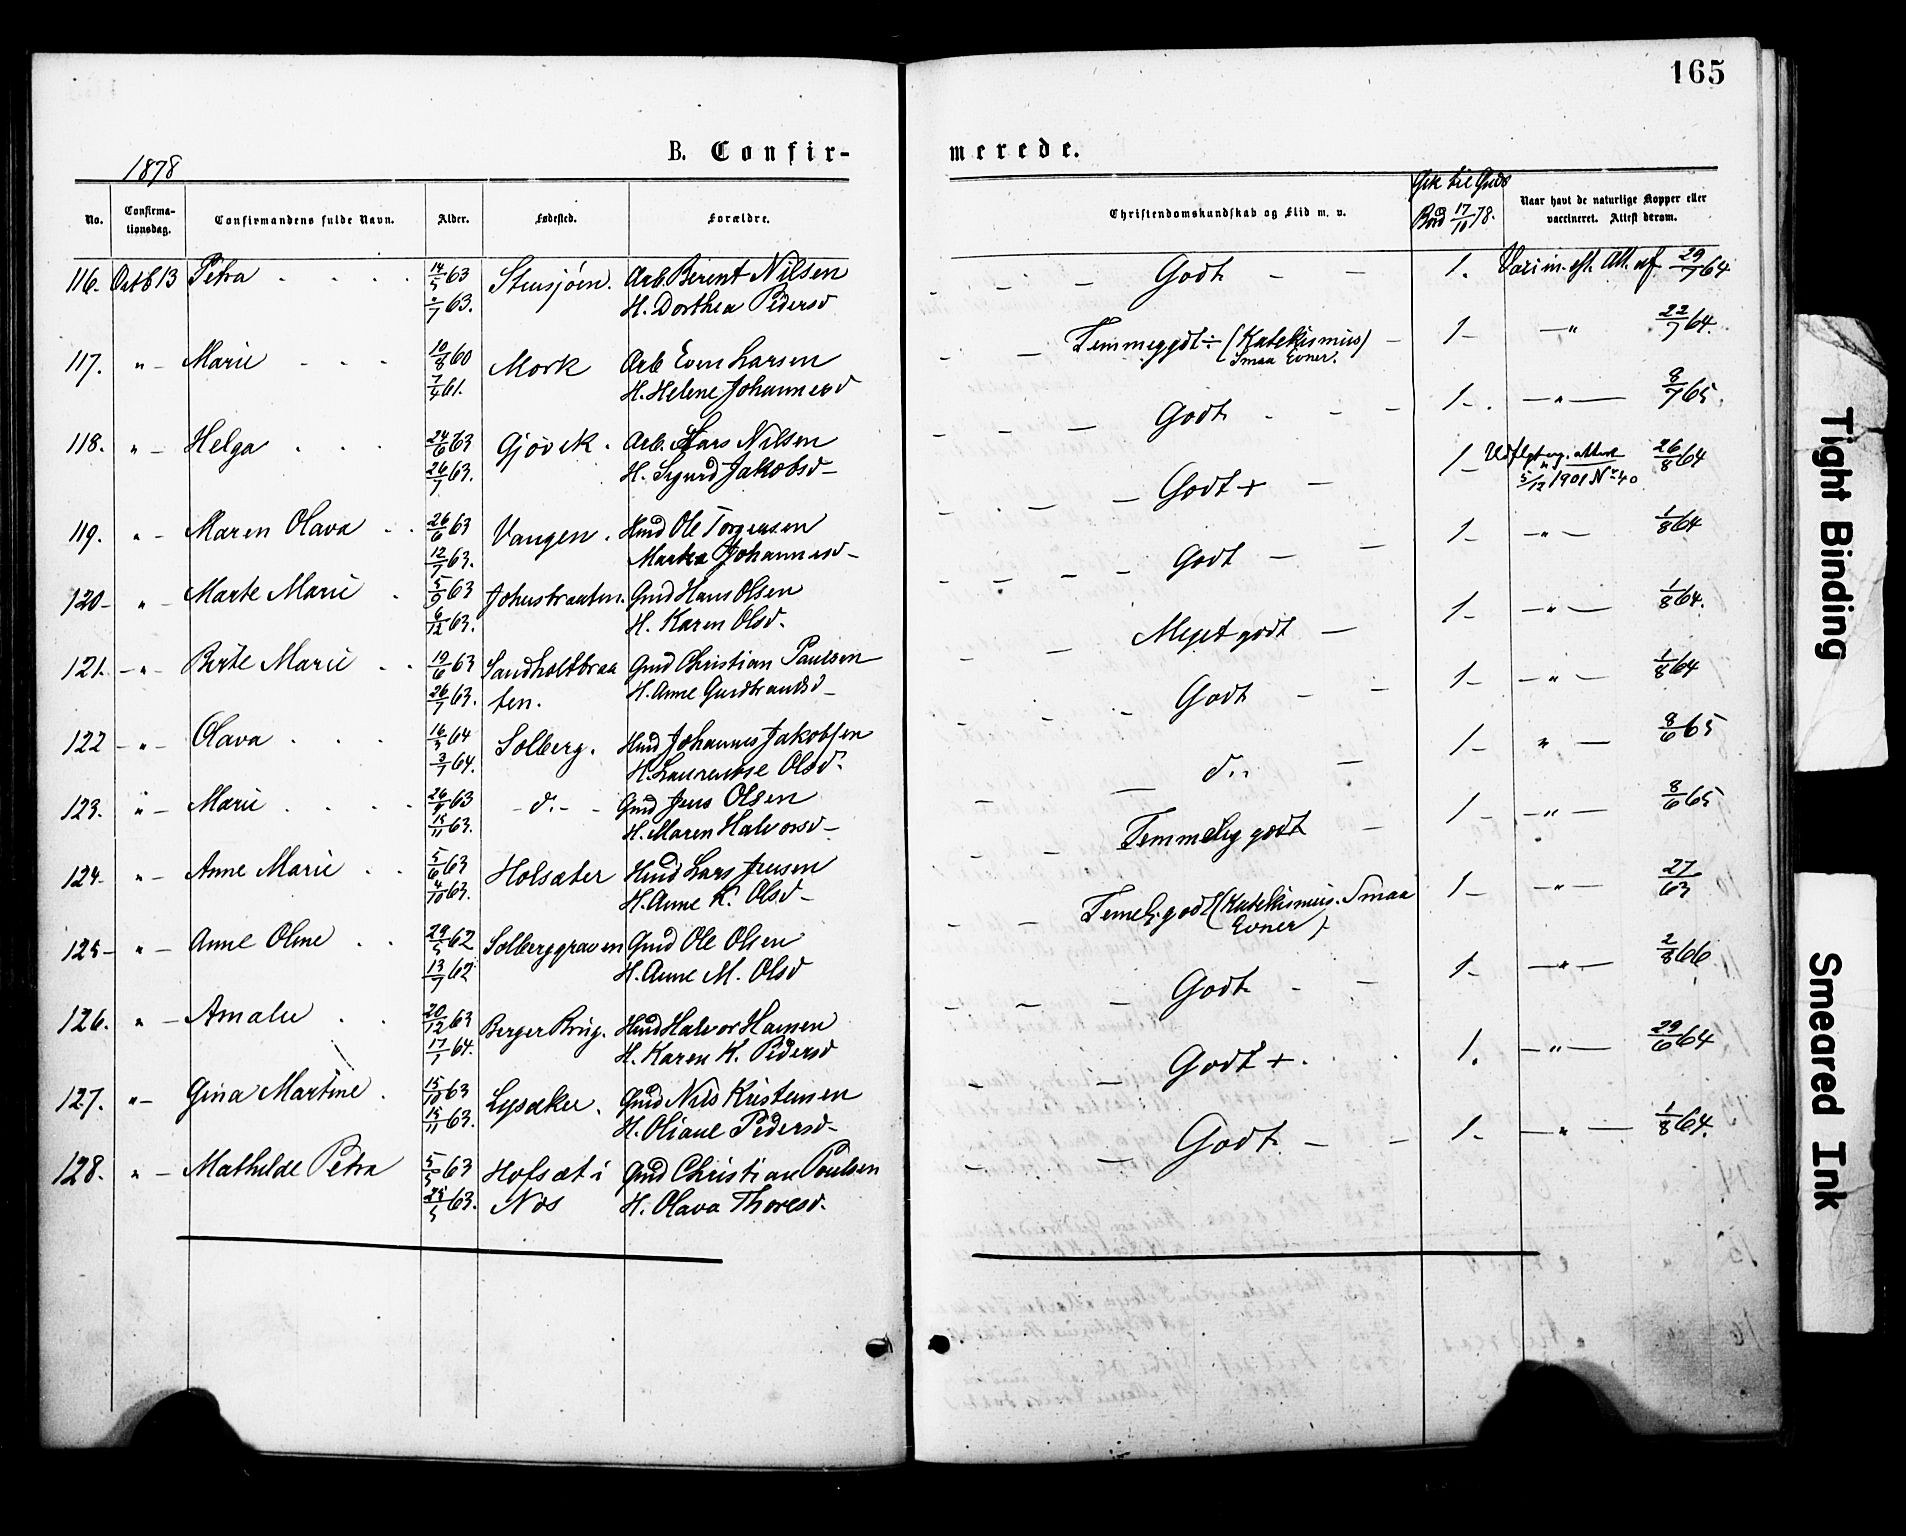 165
B. Confir-
merede.
1878
No.
Confirma-
tionsdag.
Confirmandens fulde Navn.
Alder.
Fødested.
Forældre.
Christendomskundskab og Flid m. v.
Gik til Guds
Bord 17/10 78.
Naar havt de naturlige Kopper eller
vaccineret. Attest derom.
116. Octb 13 Petra 14/5 63 Arb. Berent Nilsen Godt 1. Vacin. eft. Att. af 29/7 64
/7 63. H. Dorthea Pedersd
117. " Marie 10/8 60 Mork Arb Even Larsen (Katekismus) 1 " 22/7 64.
Smaa Evner.
7/4 61. H. Helene Johannesd
118. " Helga 24/6 63 Gjövik. Arb. Lars Nilsen Godt 1 " 8/7 65.
26/7 63. H. Sigrid Jakobsd
119. " Maren Olava 26/6 63 Vangen. Hmd Ole Torgersen Godt + 1 26/8 64
5/12 1901 No 40
12/7 63. Marthe Johannesd
120 " Marte Marie 5/9 63 Gmd Hans Olsen Godt 1 " 1/8 64
6/12 63. H. Karen Olsd.
121. " Berte Marie 19/6 63 Sandholtbraa Gmd Christian Paulsen Meget godt 1 " 1/8 64.
26/7 63. ten. H. Anne Gudbrandsd
122 " Olava 16/3 64 Solberg. Hmd Johannes Jakobsen Godt 1 " 1/8 64
3/7 64. H. Laurentse Olsd.
123. " Marie 26/9 63 d. Gmd Jens Olsen d. 1 " 8/6 65
15/11 63. H. Maren Halvorsd
124 " Anne Marie 5/6 63 Holsæter Hmd Lars Jensen Temmelig godt 1 " 8/6 65
4/10 63. H. Anne K. Olsd
125 " Anne Oline 29/5 62 Solberggraven Gmd Ole Olsen Temelg. godt (Katekismus. Smaa 1 " 27/ 63
Evner)
13/7 62 H. Anne M. Olsd
126. " Amalie 20/12 63 Berger Brug. Hmd Halvor Hansen Godt 1 " 2/8 66
17/1 64. H. Karen K. Pedersd
127. " Gina Martine 15/10 63 Lysaker. Gmd Nils Kristensen Godt +. 1. " 29/6 64
15/11 63. H. Oliane Pedersd
128. " Mathilde Petra 5/ 63 Hofsæt i Gmd Christian Poulsen Godt 1 " 1/8 64.
25/5 63. Næs H. Olava Thoresd.
Tight Binding
Smeared Ink